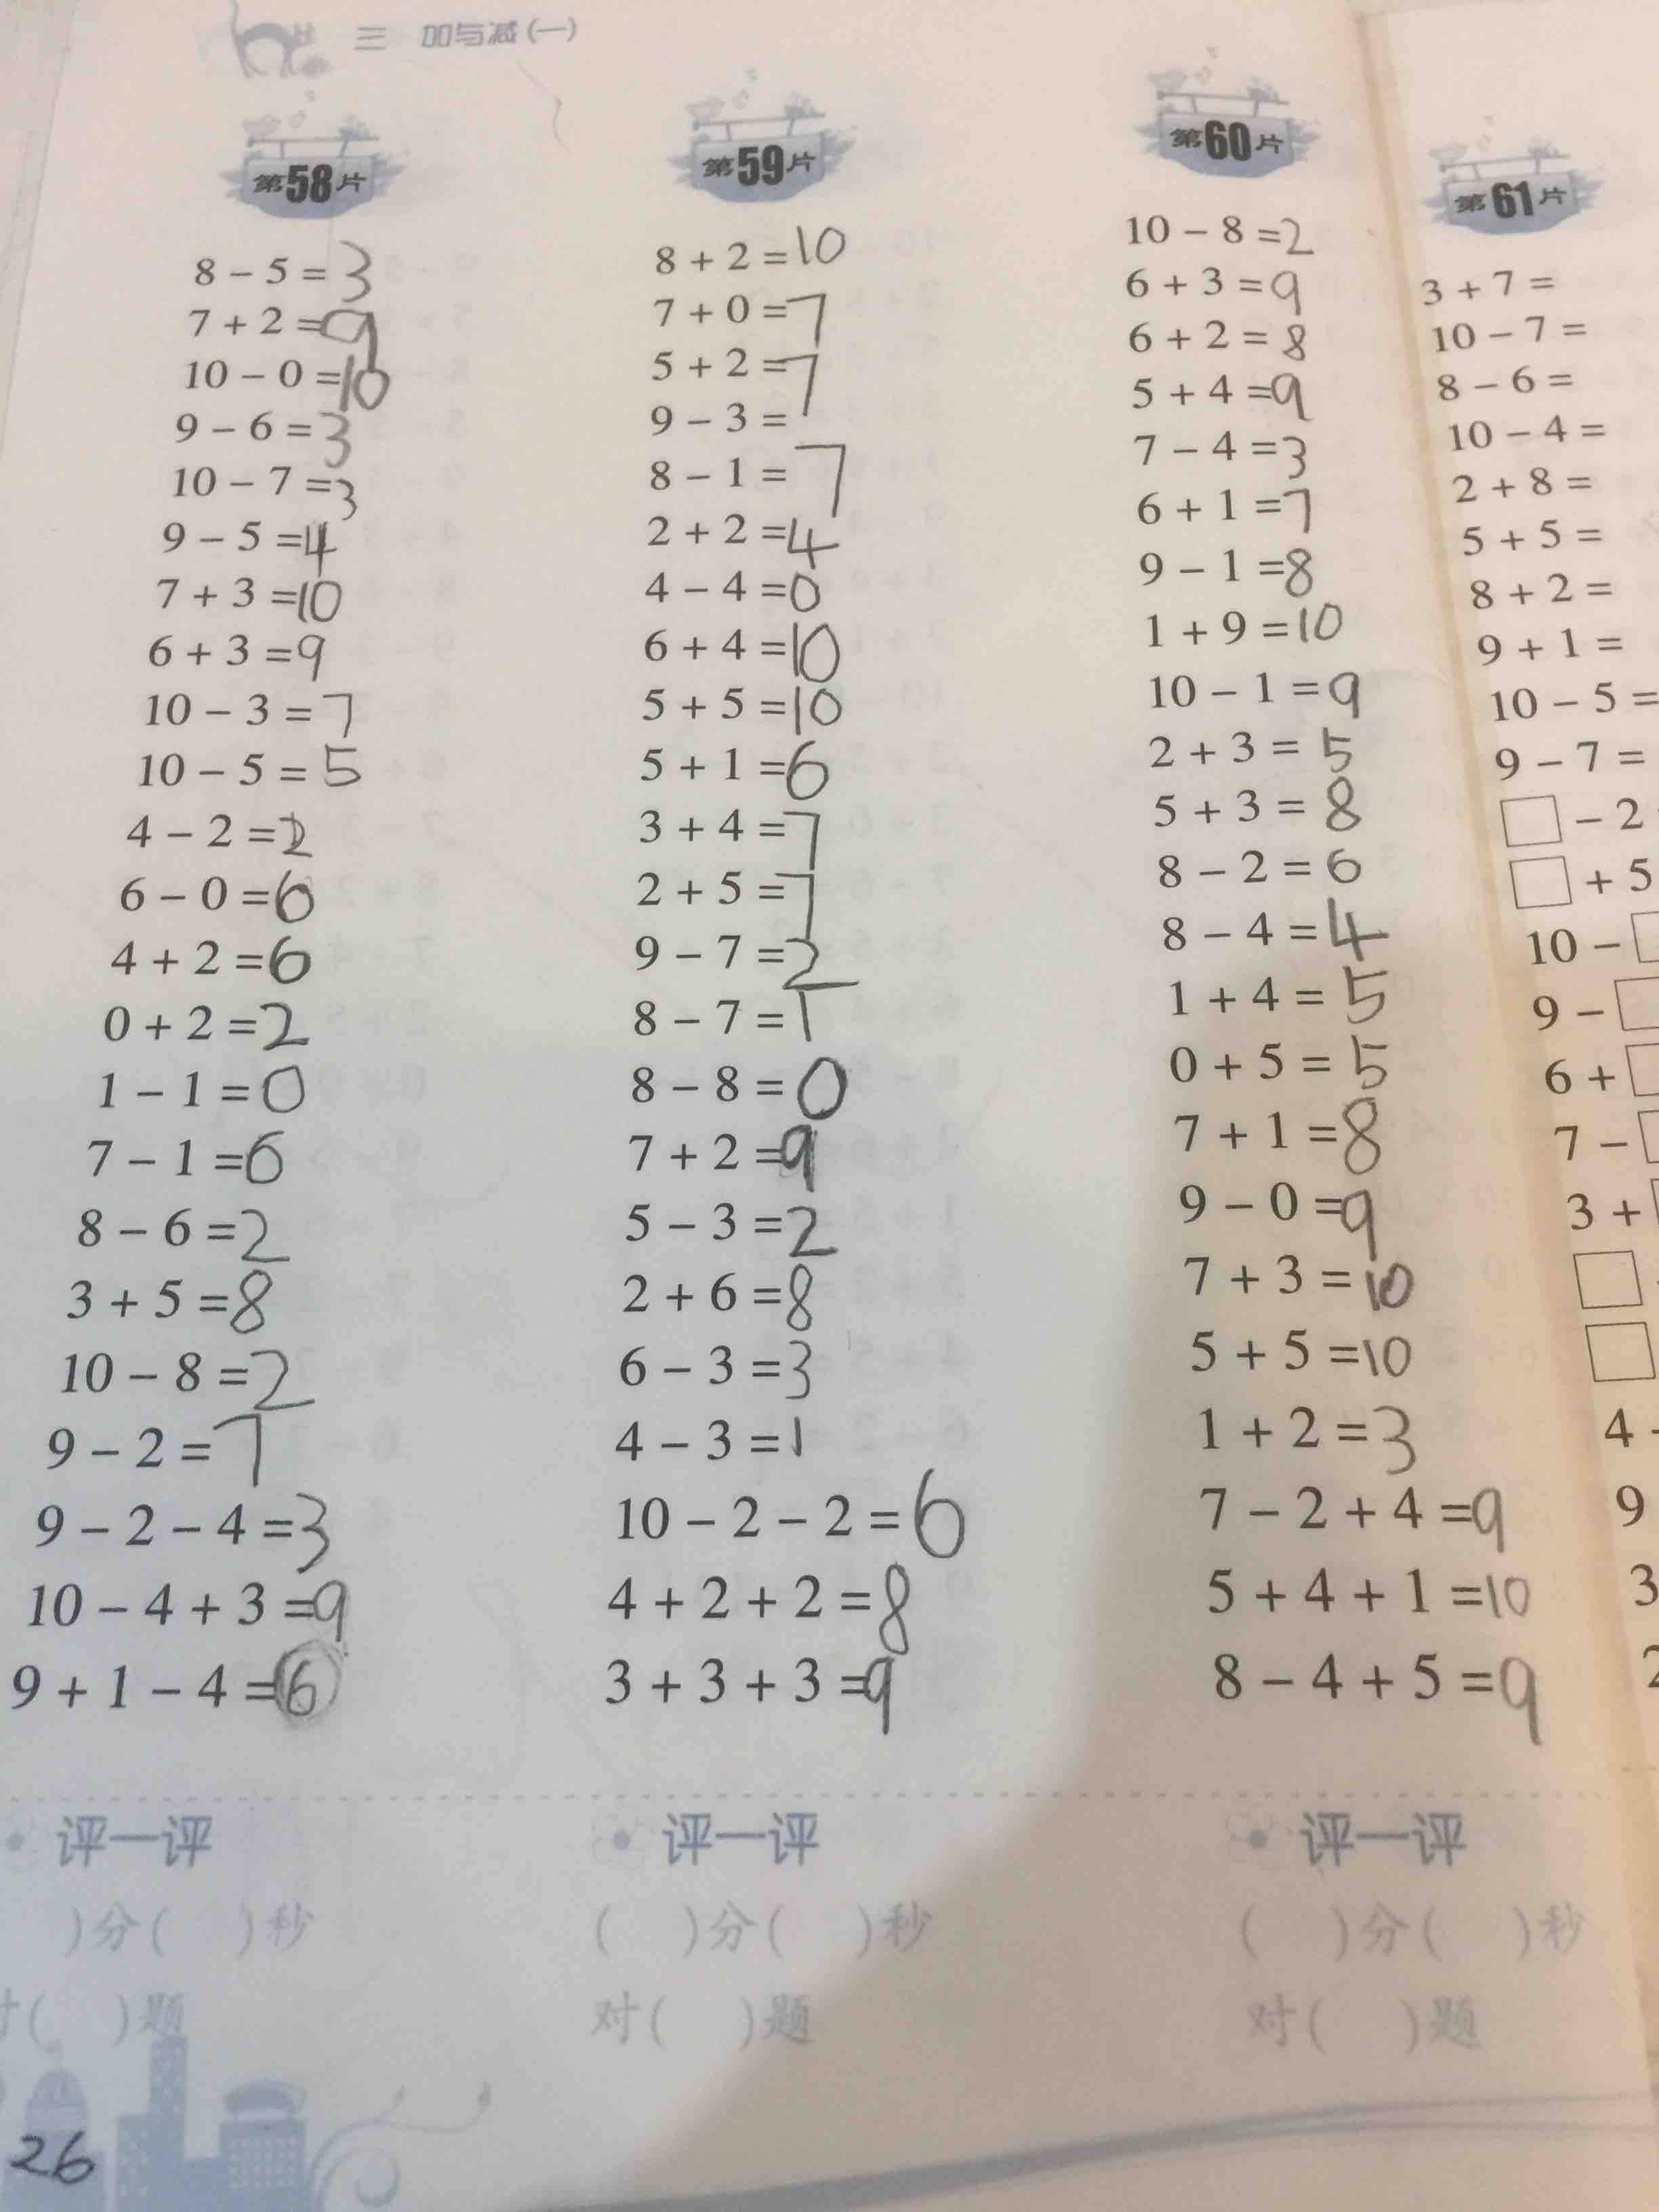 三 加与减(一)
第58片
8 − 5 = 3
7 + 2 = 9
10 − 0 = 10
9 − 6 = 3
10 − 7 = 3
9 − 5 = 4
7 + 3 = 10
6 + 3 = 9
10 − 3 = 7
10 − 5 = 5
4 − 2 = 2
6 − 0 = 6
4 + 2 = 6
0 + 2 = 2
1 − 1 = 0
7 − 1 = 6
8 − 6 = 2
3 + 5 = 8
10 − 8 = 2
9 − 2 = 7
9 − 2 − 4 = 3
10 − 4 + 3 = 9
9 + 1 − 4 = 6
评一评
)分( )秒
对( )题
第59片
8 + 2 = 10
7 + 0 = 7
5 + 2 = 7
9 − 3 =
8 − 1 = 7
2 + 2 = 4
4 − 4 = 0
6 + 4 = 10
5 + 5 = 10
5 + 1 = 6
3 + 4 = 7
2 + 5 = 7
9 − 7 = 2
8 − 7 = 1
8 − 8 = 0
7 + 2 = 9
5 − 3 = 2
2 + 6 = 8
6 − 3 = 3
4 − 3 = 1
10 − 2 − 2 = 6
4 + 2 + 2 = 8
3 + 3 + 3 = 9
评一评
( )分( )秒
对( )题
第60片
10 − 8 = 2
6 + 3 = 9
6 + 2 = 8
5 + 4 = 9
7 − 4 = 3
6 + 1 = 7
9 − 1 = 8
1 + 9 = 10
10 − 1 = 9
2 + 3 = 5
5 + 3 = 8
8 − 2 = 6
8 − 4 = 4
1 + 4 = 5
0 + 5 = 5
7 + 1 = 8
9 − 0 = 9
7 + 3 = 10
5 + 5 = 10
1 + 2 = 3
7 − 2 + 4 = 9
5 + 4 + 1 = 10
8 − 4 + 5 = 9
评一评
( )分( )秒
对( )题
第61片
3 + 7 =
10 − 7 =
8 − 6 =
10 − 4 =
2 + 8 =
5 + 5 =
8 + 2 =
9 + 1 =
10 − 5 =
9 − 7 =
□ − 2
□ + 5
10 − □
9 − □
6 + □
7 − □
3 + □
□
□
4 -
9
3
2
26